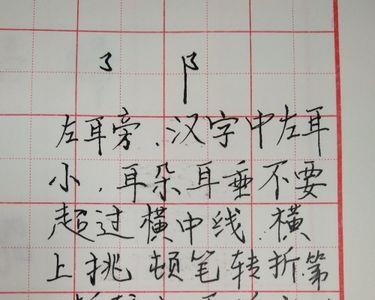 阝
左耳旁、汉字中左耳
小、耳朵耳垂不要
超过横中线、横
上挑顿笔转折第